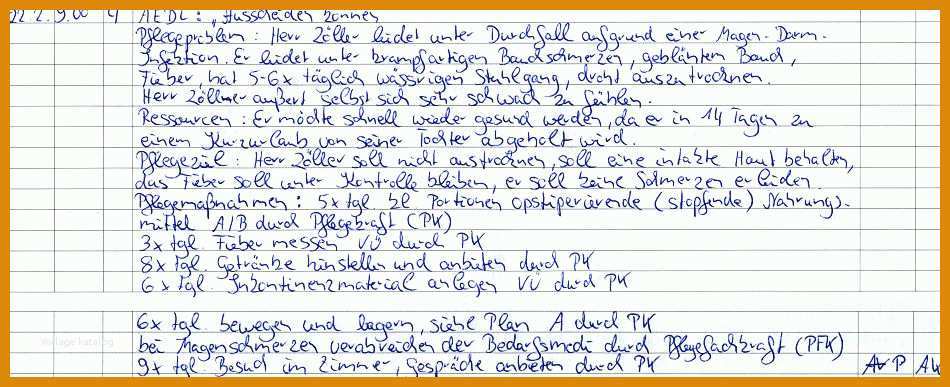 22.2. 9.00 4 AEDL: „Ausscheiden können
Pflegeproblem: Herr Zöller leidet unter Durchfall aufgrund einer Magen-Darm-
Infektion. Er leidet unter krampfartigen Bauchschmerzen, geblähtem Bauch,
Fieber, hat 5-6x täglich wässrigen Stuhlgang, droht auszutrocknen.
Herr Zöllner äußert selbst sich sehr schwach zu fühlen.
Ressourcen: Er möchte schnell wieder gesund werden, da er in 14 Tagen zu
einem Kurzurlaub von seiner Tochter abgeholt wird.
Pflegeziel: Herr Zöller soll nicht austrocknen, soll eine intakte Haut behalten,
das Fieber soll unter Kontrolle bleiben, er soll keine Schmerzen erleiden.
Pflegemaßnahmen: 5x tgl. kl Portionen opstipierende (stopfende) Nahrungs-
mittel A/B durch Pflegekraft (PK)
3x tgl. Fieber messen VÜ durch PK
8x tgl. Getränke hinstellen und anbieten durch PK
6x tgl. Inkontinenzmaterial anlegen VÜ durch PK
6x tgl. bewegen und lagern, siehe Plan A durch PK
bei Magenschmerzen verabreichen der Bedarfsmedi durch Pflegefachkraft (PFK)
9x tgl. Besuch im Zimmer, Gespräche anbieten durch PK